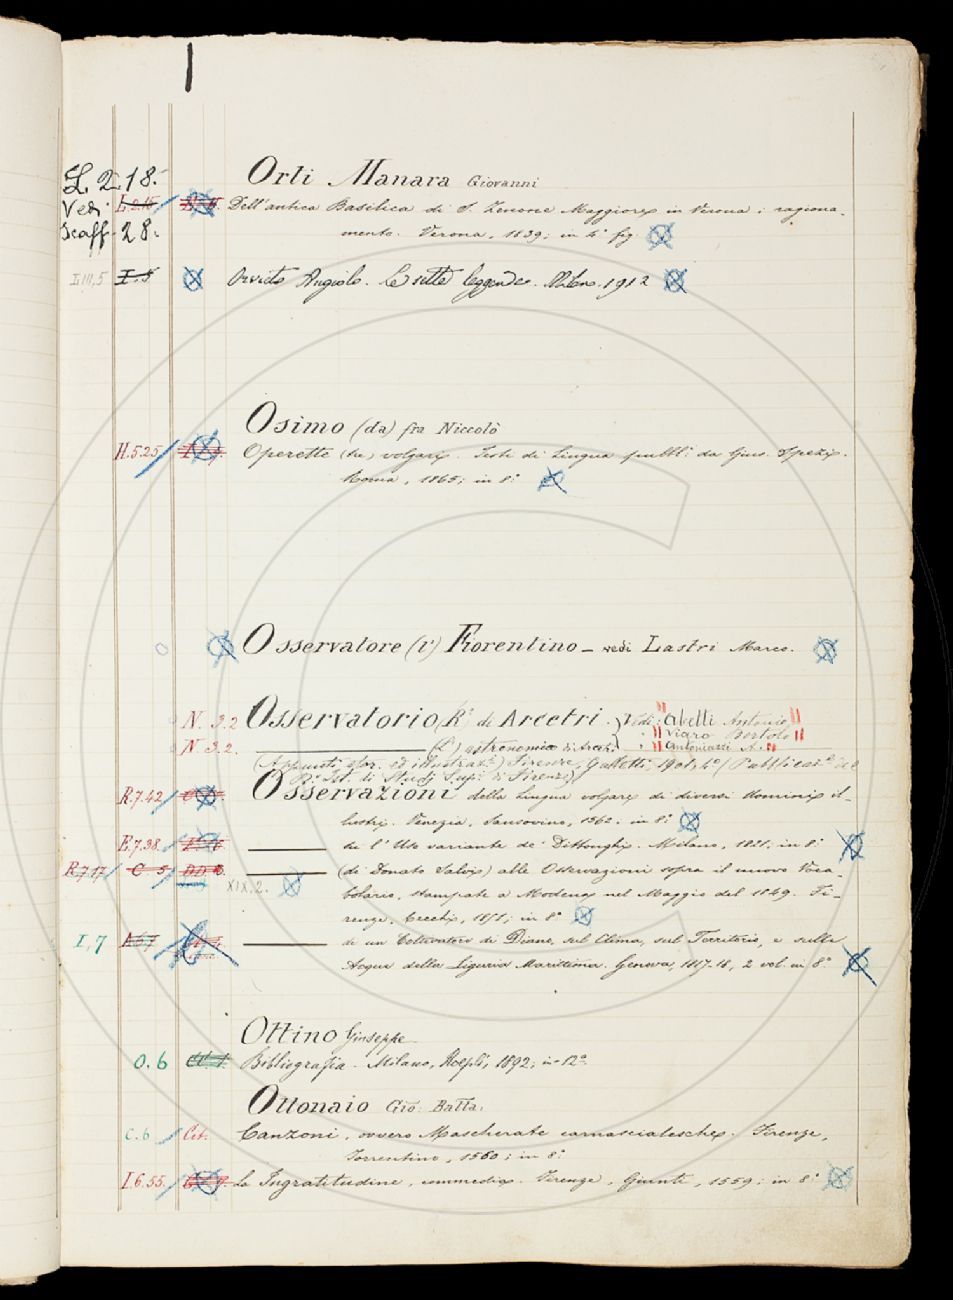 L. 2.18.
Orti Manara Giovanni
Vedi L.2.15 Dell'antica Basilica di S. Zenone Maggiore in Verona: ragiona-
Scaff. 28. mento. Verona, 1839; in 4° fig.
I.III,5 I.5 Orvieto Angiolo. Le sette leggende. Milano. 1912
Osimo (da) fra Niccolò
H.5.25 Operette (due) volgari. Testi di Lingua pubbl. da Gius. Spezi.
Roma, 1865; in 8°
Osservatore (l') Fiorentino - vedi Lastri Marco.
N. 3.2 Osservatorio (R°) di Arcetri. Vedi Abetti Antonio
" Viaro Bortolo
N. 3.2. (L') astronomico di Arcetri " Antoniazzi A.
Firenze, Galletti, 1901, 4° (Pubblicaz.e del
R.° Ist. di Studj Sup.i di Firenze)
R.7.42 Osservazioni della Lingua volgare di diversi Uomini il-
lustri. Venezia, Sansovino, 1562. in 8°
E.7.38. su l'Uso variante de' Dittonghi. Milano, 1821, in 8°
R.7.17 C 5 DD (di Donato Salvi) alle Osservazioni sopra il nuovo Voca-
XIX.2. bolario, stampate a Modena nel Maggio del 1849. Fi-
renze, Cecchi, 1851; in 8°
I,7 di un Coltivatore di Diano, sul Clima, sul Territorio, e sulle
Acque della Liguria Marittima. Genova, 1817-18, 2 vol. in 8°
Ottino Giuseppe
O.6 Bibliografia. Milano, Hoepli, 1892; in 12°
Ottonaio Gio: Batta.
C.6 Cit. Canzoni, ovvero Mascherate carnascialesche. Firenze,
Torrentino, 1560; in 8°
I.6.55. La Ingratitudine, commedia. Firenze, Giunti, 1559; in 8°